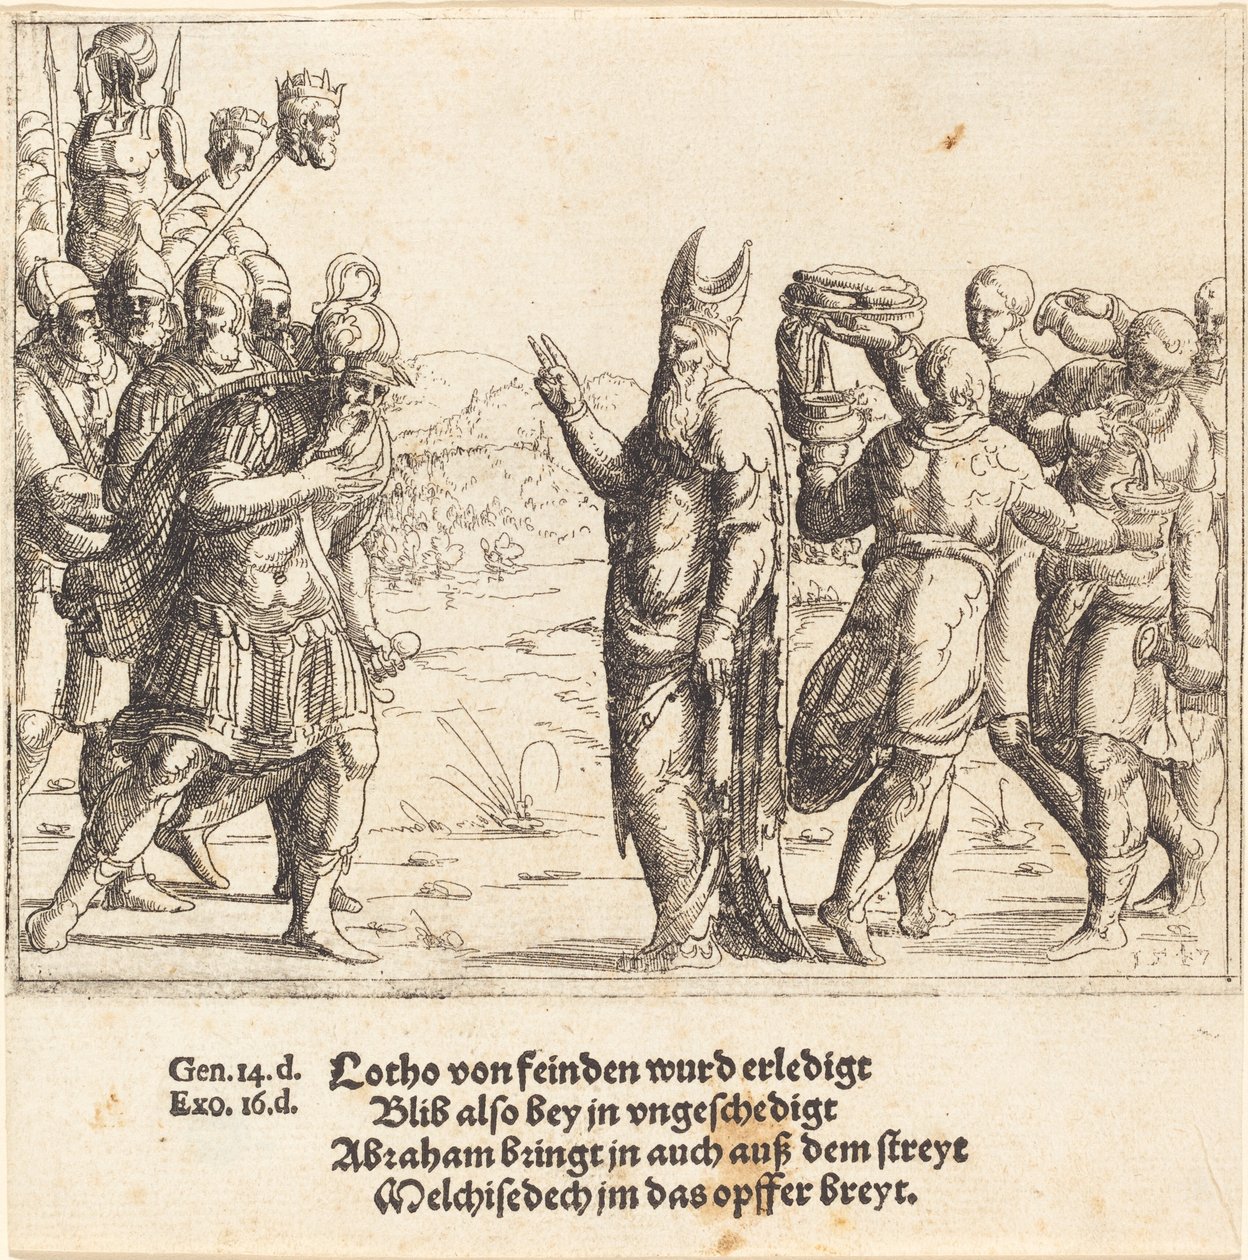 1547
Gen. 14. d. Lotho von feinden wurd erledigt
Exo. 16. d. Blib also bey jn vngeschedigt
Abraham bringt jn auch auß dem streyt
Melchisedech jm das opffer breyt.